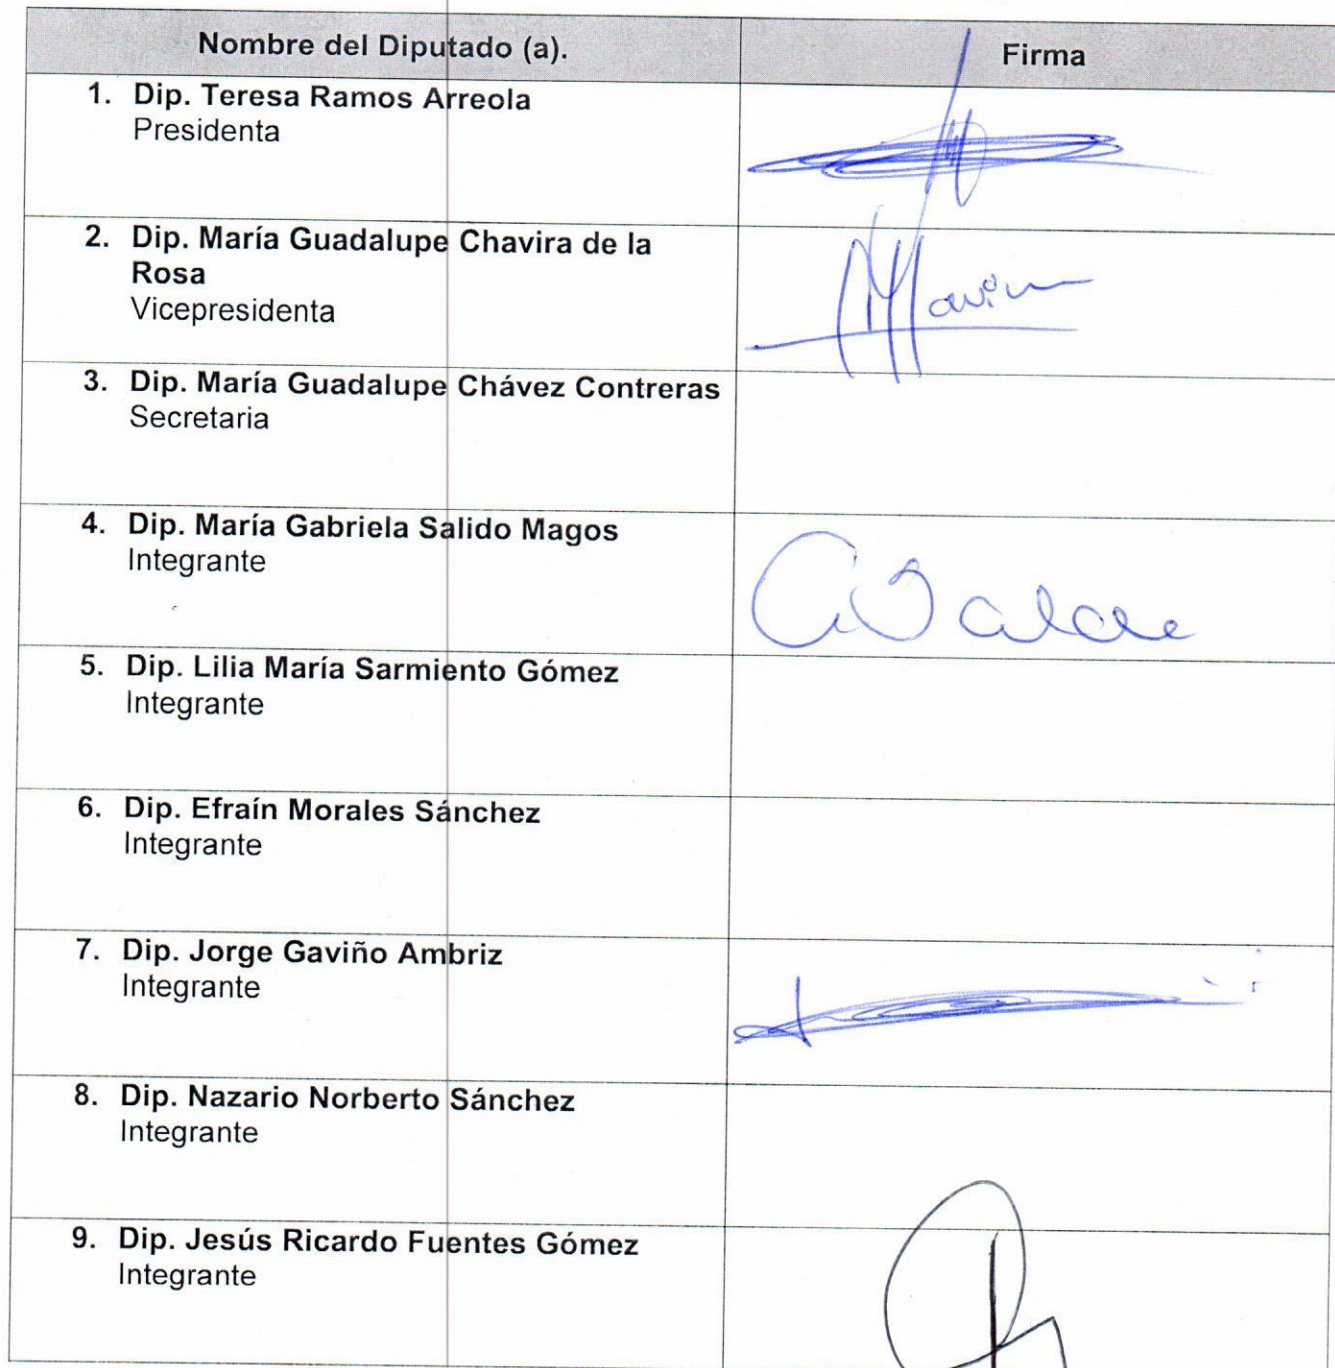 Nombre del Diputado (a).
Firma
1. Dip. Teresa Ramos Arreola
Presidenta
2. Dip. María Guadalupe Chavira de la
Rosa
Vicepresidenta
3. Dip. María Guadalupe Chávez Contreras
Secretaria
4. Dip. María Gabriela Salido Magos
Integrante
5. Dip. Lilia María Sarmiento Gómez
Integrante
6. Dip. Efraín Morales Sánchez
Integrante
7. Dip. Jorge Gaviño Ambriz
Integrante
8. Dip. Nazario Norberto Sánchez
Integrante
9. Dip. Jesús Ricardo Fuentes Gómez
Integrante